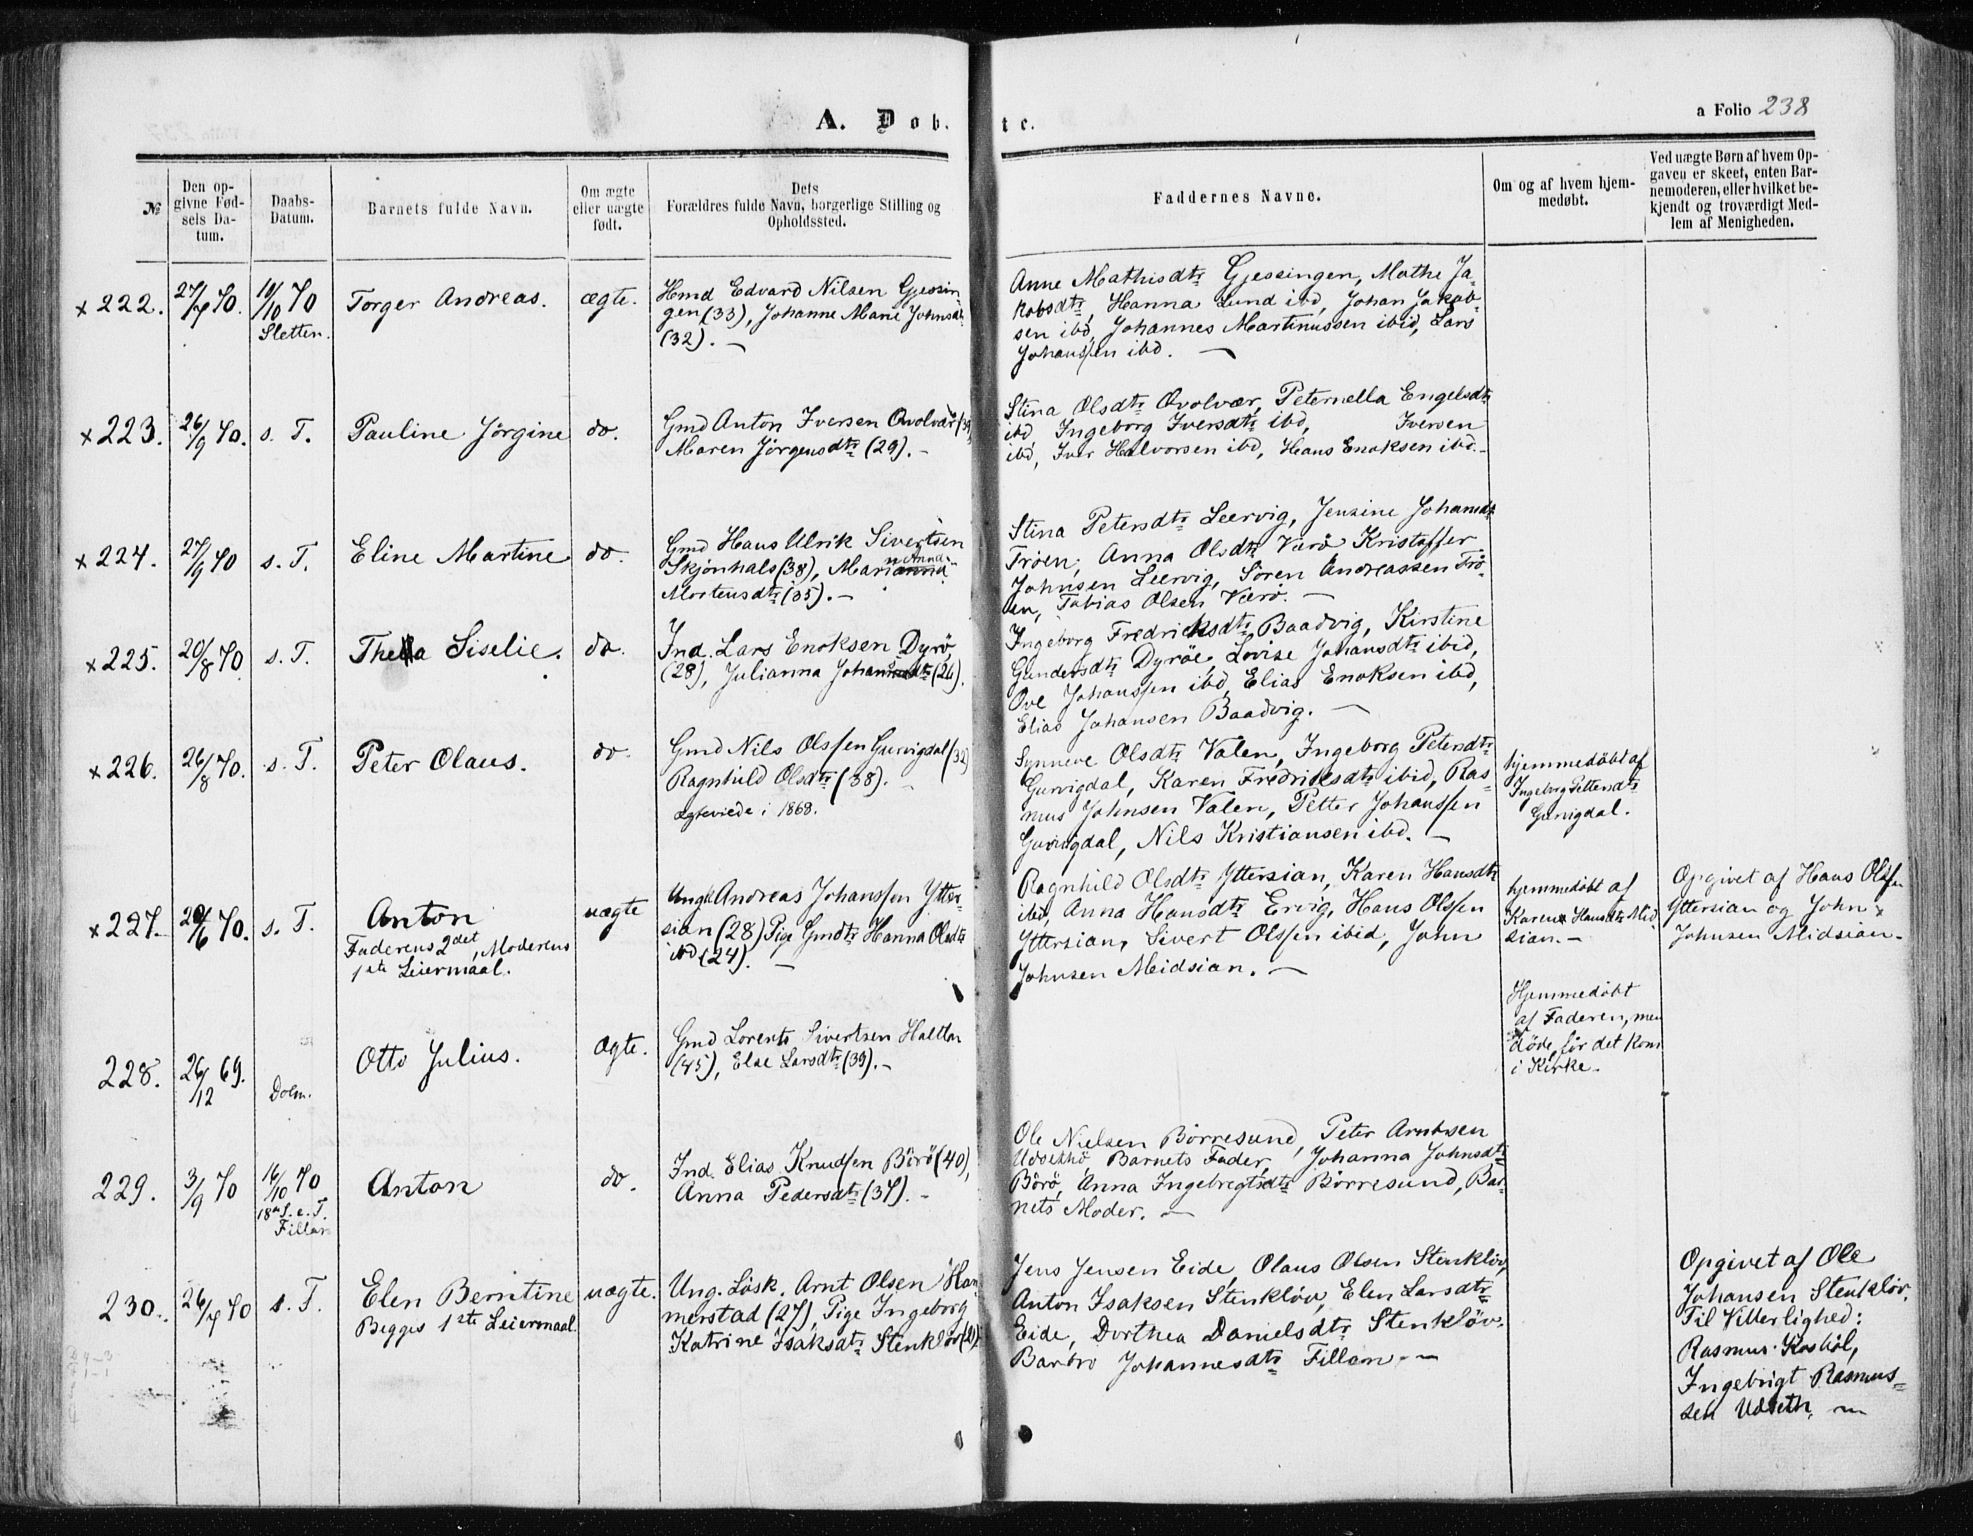 A. Døbte.
a Folio 238
№
Den opgivne Fødsels Datum.
Daabs-Datum.
Barnets fulde Navn.
Om ægte eller uægte født.
Dets Forældres fulde Navn, borgerlige Stilling og Opholdssted.
Faddernes Navne.
Om og af hvem hjemmedøbt.
Ved uægte Børn af hvem Opgaven er skeet, enten Barnemoderen, eller hvilket bekjendt og troværdigt Medlem af Menigheden.
x 222.
27/7 70.
16/10 70
Sletten.
Torger Andreas.
ægte.
Hmd Edvard Nilsen Gjessin-
gen (33), Johanne Marie Johnsdtr
(32). —
Anne Mathisdtr Gjessingen, Mathe Ja-
kobsdtr, Hanna Lund ibd, Johan Jakob-
sen ibd, Johannes Martinussen ibid, Lars
Johanssen ibd. —
x 223.
26/9 70.
s. T.
Pauline Jørgine
do.
Gmd Anton Iversen Qvolvær (39),
Maren Jørgensdtr (29). —
Stina Olsdtr Qvolvær, Peternella Engelsdtr
ibd, Ingeborg Iversdtr ibd, Iversen
ibd, Iver Halvorsen ibd, Hans Enoksen ibd. —
x 224.
27/9 70
s. T.
Eline Martine
do.
Gmd Hans Ulrik Sivertsen
Skjønhals (38), Marianna
Mortensdtr (35). —
Stina Petersdtr Leervig, Jensine Johansdtr
Trøen, Anna Olsdtr Værø Kristoffer
Johnsen Leervig, Søren Andreassen Trø-
en, Tobias Olsen Værø. —
x 225.
20/8 70
s. T.
Thea Siselie.
do.
Ind. Lars Enoksen Dyrø,
(28), Julianna Johannsdtr (26).
Ingeborg Fredriksdtr Baadvig, Kirstine
Gundersdtr Dyrøe, Lovise Johansdtr ibid,
Ove Johanssen ibd, Elias Enoksen ibd,
Elias Johansen Baadvig. —
x 226.
26/8 70.
s. T.
Peter Olaus.
do.
Gmd Nils Olssen Gurvigdal (32)
Ragnhild Olsdtr (38). —
Ægteviede i 1868.
Synneve Olsdtr Valen, Ingeborg Petersdtr
Gurvigdal, Karen Fredriksdtr ibid, Ras-
mus Johnsen Valen, Petter Johanssen
Gurvigdal, Nils Kristiansen ibd. —
hjemmedøbt af
Ingeborg Pettersdtr
Gurvigdal.
x 227.
20/6 70.
s. T.
Anton
Faderens 2det, Moderens
1ste Leiermaal.
uægte
Ungk. Andreas Johanssen Ytter-
sian (28) Pige Gmdtr Hanna Olsdtr
ibd (24). —
Ragnhild Olsdtr Yttersian, Karen Hansdtr
ibd, Anna Hansdtr Ervig, Hans Olssen
Yttersian, Sivert Olssen ibid, John
Johnsen Midsian. —
hjemmedøbt af
Karen Hansdtr Mid
sian. —
Opgivet af Hans Olssen
Yttersian og John
Johnsen Midsian. —
228.
26/12 69.
Dolm.
Otto Julius.
Ægte.
Gmd Lorents Sivertsen Haltlan
(45), Else Larsdtr (39). —
Hjemmedøbt
af Faderen, men
døde, før det kom
i Kirke.
229.
3/9 70
16/10 70
18de S. e. T.
Fillan
Anton
do.
Ind. Elias Knudsen Børø (40),
Anna Pedersdtr (37). —
Ole Nielsen Børresund, Peter Arntsen
Barnets Fader, Johanna Johnsdtr
Børø, Anna Ingebregtsdtr Børresund, Bar-
nets Moder. —
230.
26/7 70
s. T.
Elen Berntine
Begges 1ste Leiermaal.
uægte.
Ung. Løsk. Arnt Olsen Ham-
merstad (27), Pige Ingeborg
Katrine Isaksdtr Stenkløv (21)
Jens Jensen Eide, Olaus Olsen Stenkløv,
Anton Isaksen Stenkløv, Elen Larsdtr
Eide, Dorthea Danielsdtr Stenkløv
Barbro Johannesdtr Fillan. —
Opgivet af Ole
Johansen Stenkløv.
Til Vitterlighed:
Rasmus Kosböl,
Ingebrigt Rasmus-
sen Udseth.